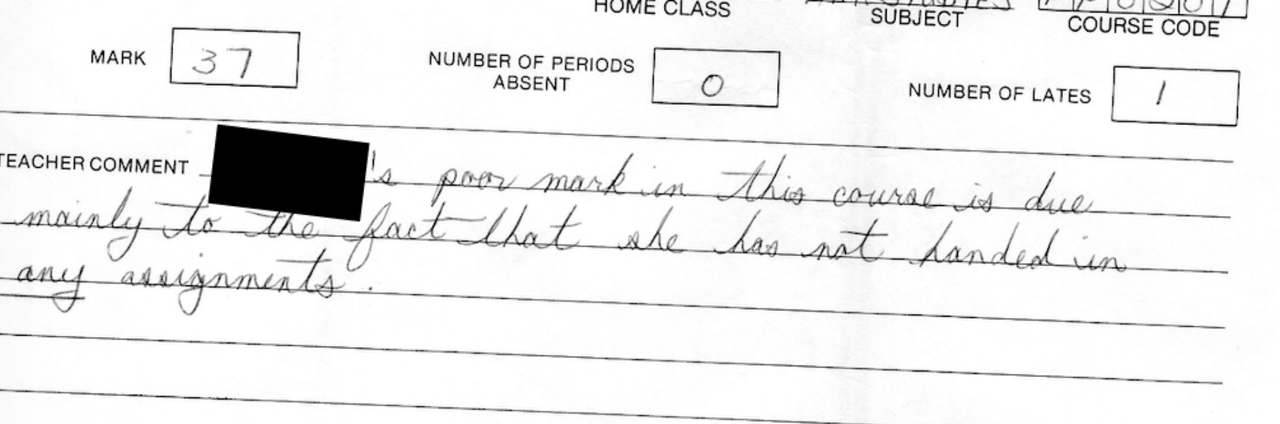 HOME CLASS
SUBJECT
COURSE CODE
MARK 37
NUMBER OF PERIODS
ABSENT 0
NUMBER OF LATES 1
TEACHER COMMENT 's poor mark in this course is due
mainly to the fact that she has not handed in
any assignments.